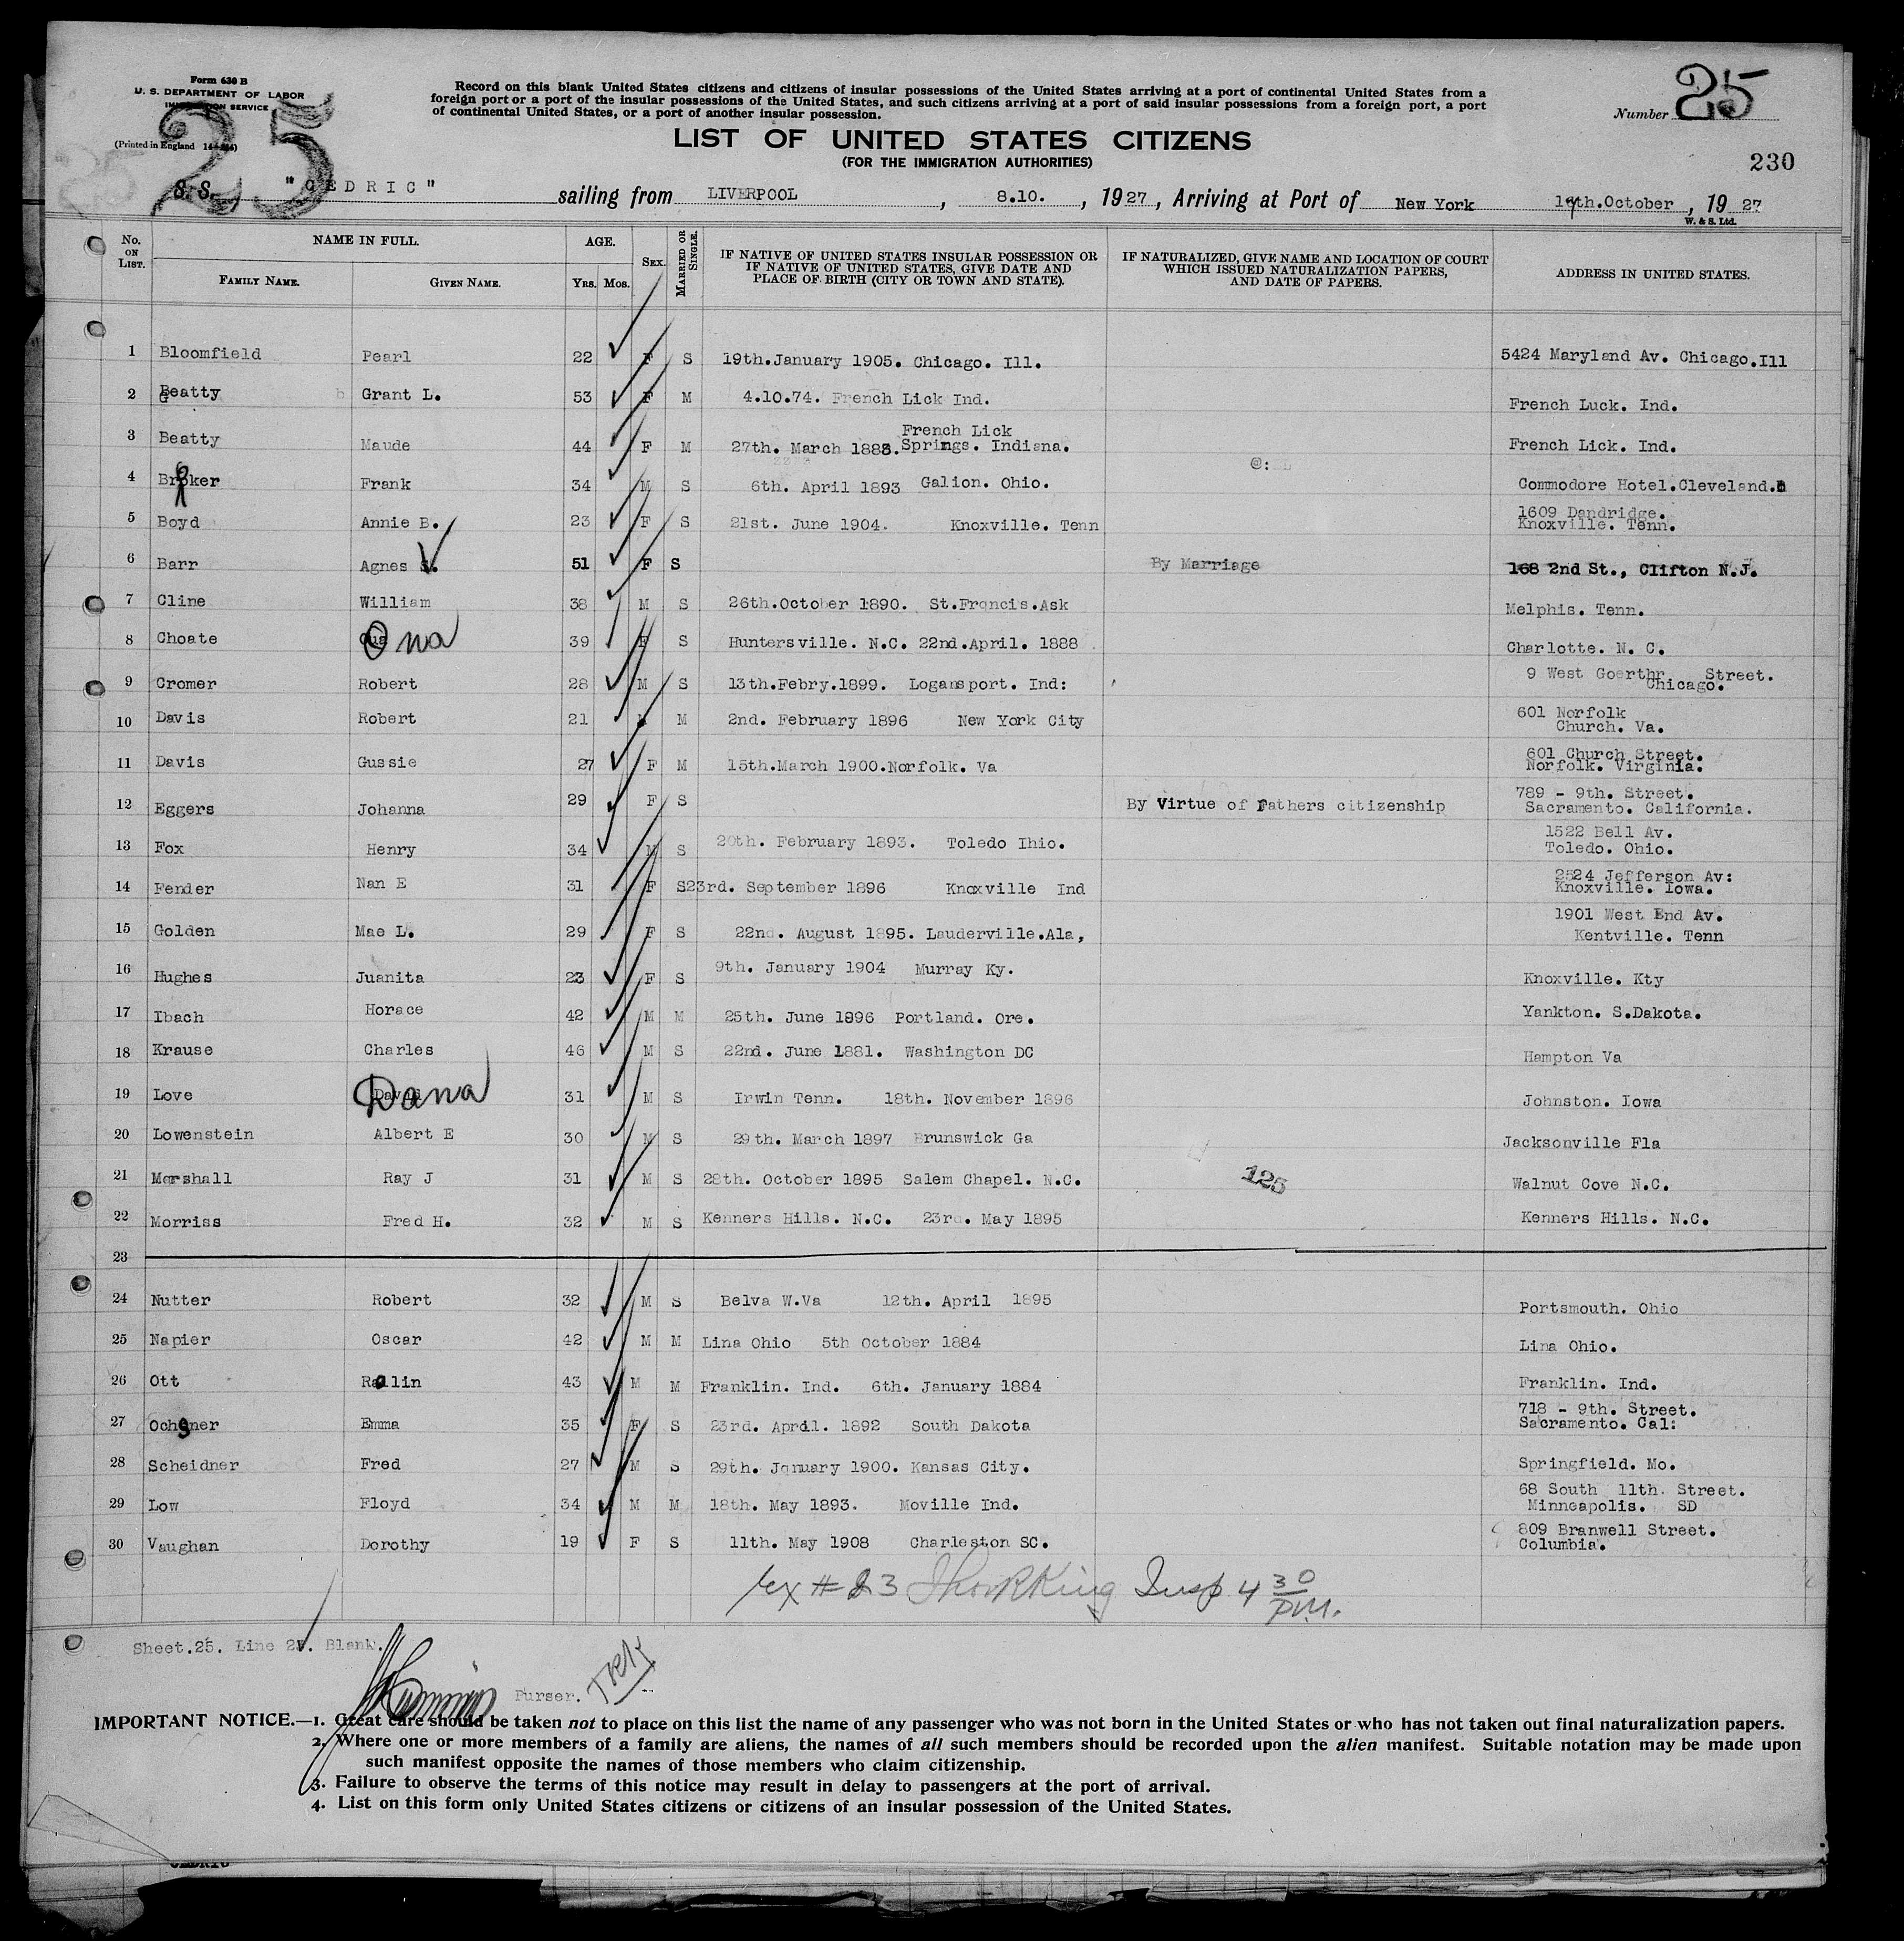 Form 630 B
U. S. DEPARTMENT OF LABOR
IMMIGRATION SERVICE
(Printed in England
25
Record on this blank United States citizens and citizens of insular possessions of the United States arriving at a port of continental United States from a
foreign port or a port of the insular possessions of the United States, and such citizens arriving at a port of said insular possessions from a foreign port, a port
of continental United States, or a port of another insular possession.
Number 25
LIST OF UNITED STATES CITIZENS
(FOR THE IMMIGRATION AUTHORITIES)
230
S. S. "CEDRIC" sailing from LIVERPOOL, 8.10., 1927, Arriving at Port of New York 17th.October, 1927
W. & S. Ltd.
No. ON LIST. NAME IN FULL. FAMILY NAME. GIVEN NAME. AGE. YRS. MOS. SEX. MARRIED OR SINGLE. IF NATIVE OF UNITED STATES INSULAR POSSESSION OR IF NATIVE OF UNITED STATES, GIVE DATE AND PLACE OF BIRTH (CITY OR TOWN AND STATE). IF NATURALIZED, GIVE NAME AND LOCATION OF COURT WHICH ISSUED NATURALIZATION PAPERS, AND DATE OF PAPERS. ADDRESS IN UNITED STATES.
1 Bloomfield Pearl 22 F S 19th.January 1905. Chicago. Ill. 5424 Maryland Av. Chicago.Ill
2 Beatty Grant L. 53 F M 4.10.74. French Lick Ind. French Luck. Ind.
3 Beatty Maude 44 F M 27th. March 1883. French Lick Springs. Indiana. French Lick. Ind.
4 Broker Frank 34 M S 6th. April 1893 Galion. Ohio. Commodore Hotel.Cleveland.
5 Boyd Annie B. 23 F S 21st. June 1904. Knoxville. Tenn 1609 Dandridge. Knoxville. Tenn.
6 Barr Agnes S. 51 F S By Marriage 168 2nd St., Clifton N.J.
7 Cline William 38 M S 26th.October 1890. St.Francis.Ask Melphis. Tenn.
8 Choate Ona 39 F S Huntersville. N.C. 22nd.April. 1888 Charlotte. N. C.
9 Cromer Robert 28 M S 13th.Febry.1899. Logansport. Ind: 9 West Goerthr Street. Chicago.
10 Davis Robert 21 M M 2nd. February 1896 New York City 601 Norfolk Church. Va.
11 Davis Gussie 27 F M 15th.March 1900.Norfolk. Va 601 Church Street. Norfolk. Virginia.
12 Eggers Johanna 29 F S By Virtue of Fathers citizenship 789 - 9th. Street. Sacramento. California.
13 Fox Henry 34 M S 20th. February 1893. Toledo Ihio. 1522 Bell Av. Toledo. Ohio.
14 Fender Nan E 31 F S 23rd. September 1896 Knoxville Ind 2524 Jefferson Av: Knoxville. Iowa.
15 Golden Mae L. 29 F S 22nd. August 1895. Lauderville.Ala, 1901 West End Av. Kentville. Tenn
16 Hughes Juanita 23 F S 9th. January 1904 Murray Ky. Knoxville. Kty
17 Ibach Horace 42 M M 25th. June 1896 Portland. Ore. Yankton. S.Dakota.
18 Krause Charles 46 M S 22nd. June 1881. Washington DC Hampton Va
19 Love Dana 31 M S Irwin Tenn. 18th. November 1896 Johnston. Iowa
20 Lowenstein Albert E 30 M S 29th. March 1897 Brunswick Ga Jacksonville Fla
21 Marshall Ray J 31 M S 28th. October 1895 Salem Chapel. N.C. 125 Walnut Cove N.C.
22 Morriss Fred H. 32 M S Kenners Hills. N.C. 23rd. May 1895 Kenners Hills. N.C.
23
24 Nutter Robert 32 M S Belva W.Va 12th. April 1895 Portsmouth. Ohio
25 Napier Oscar 42 M M Lina Ohio 5th October 1884 Lina Ohio.
26 Ott Rollin 43 M M Franklin. Ind. 6th. January 1884 Franklin. Ind.
27 Ochsner Emma 35 F S 23rd. April. 1892 South Dakota 718 - 9th. Street. Sacramento. Cal:
28 Scheidner Fred 27 M S 29th. January 1900. Kansas City. Springfield. Mo.
29 Low Floyd 34 M M 18th. May 1893. Moville Ind. 68 South 11th. Street. Minneapolis. SD
30 Vaughan Dorothy 19 F S 11th. May 1908 Charleston SC. 809 Branwell Street. Columbia.
ex # 23 King Insp 4 30 P.M.
Sheet.25. Line 23. Blank.
Purser.
IMPORTANT NOTICE.—1. Great care should be taken not to place on this list the name of any passenger who was not born in the United States or who has not taken out final naturalization papers.
2. Where one or more members of a family are aliens, the names of all such members should be recorded upon the alien manifest. Suitable notation may be made upon
such manifest opposite the names of those members who claim citizenship.
3. Failure to observe the terms of this notice may result in delay to passengers at the port of arrival.
4. List on this form only United States citizens or citizens of an insular possession of the United States.